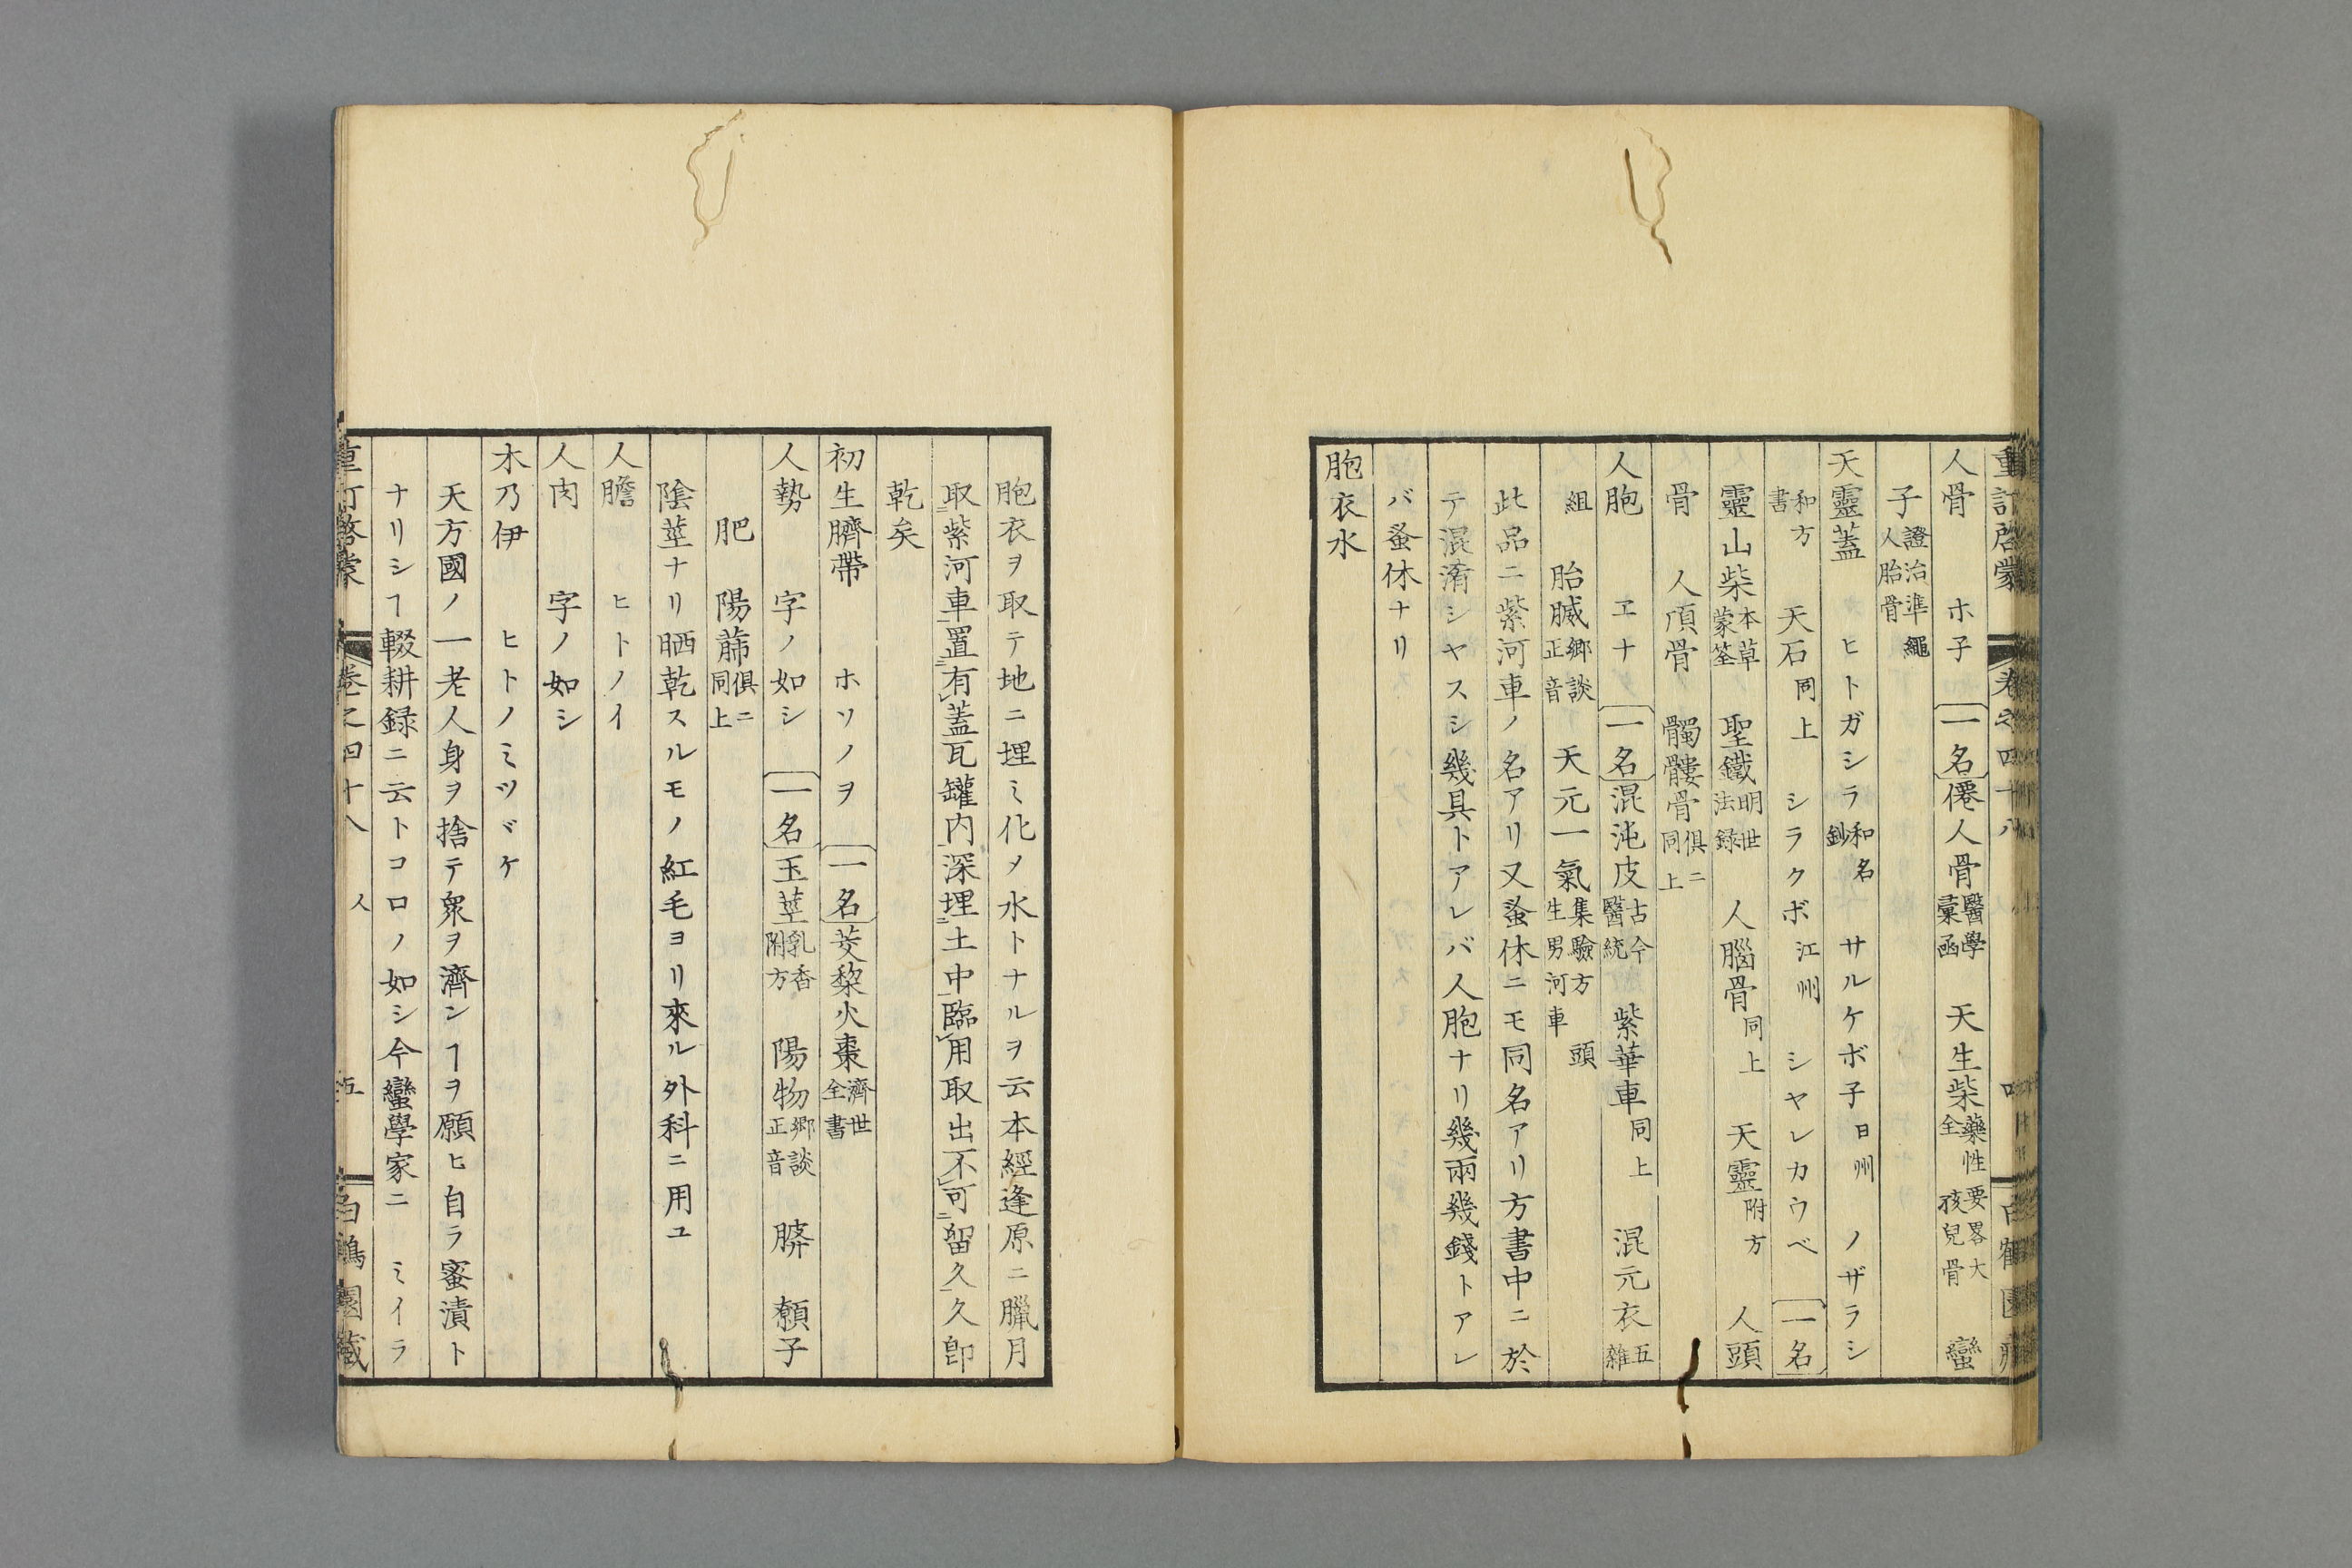 人骨　ホ子　一名僊人骨醫學彙函　天生柴藥性要畧大全　孩兒骨　蠻
子證治準繩人胎骨
天靈蓋　ヒトガシラ和名鈔　サルケボ子日州　ノザラシ
和方書　天石同上　シラクボ江州　シヤレカウベ　一名
靈山柴本草蒙筌　聖鐵明世法録　人腦骨同上　天靈附方　人頭
骨　人頂骨　髑髏骨俱ニ同上
人胞　ヱナ　一名混沌皮古今醫統　紫華車同上　混元衣五雜
組　胎臧郷談正音　天元一氣集驗方　生男河車　頭
此品ニ紫河車ノ名アリ又蚤休ニモ同名アリ方書中ニ於
テ混淆シヤスシ幾具トアレバ人胞ナリ幾兩幾錢トアレ
バ蚤休ナリ
胞衣水
胞衣ヲ取テ地ニ埋ミ化メ水トナルヲ云本經逢原ニ臘月
取紫河車置有蓋瓦罐内深埋土中臨用取出不可留久久卽
乾矣
初生臍帶　ホソノヲ　一名芡藜火棗濟世全書
人勢　字ノ如シ　一名玉莖乳香附方　陽物郷談正音　䐡　顙子
肥　陽蒒俱ニ同上
陰莖ナリ晒乾スルモノ紅毛ヨリ來ル外科ニ用ユ
人膽　ヒトノイ
人肉　字ノ如シ
木乃伊　ヒトノミツヾケ
天方國ノ一老人身ヲ捨テ衆ヲ濟ンヿヲ願ヒ自ラ蜜漬ト
ナリシヿ輟耕録ニ云トコロノ如シ今蠻學家ニ　ミイラ
重訂啓蒙　卷之四十八　人　五　白鶴園藏